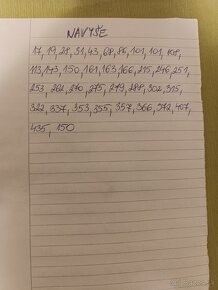 NAVYŠE
17, 19, 21, 31, 43, 68, 86, 101, 101, 108,
113, 143, 150, 161, 163, 166, 215, 246, 251,
253, 262, 270, 275, 279, 288, 302, 315,
322, 337, 353, 355, 357, 366, 372, 407,
435, 150